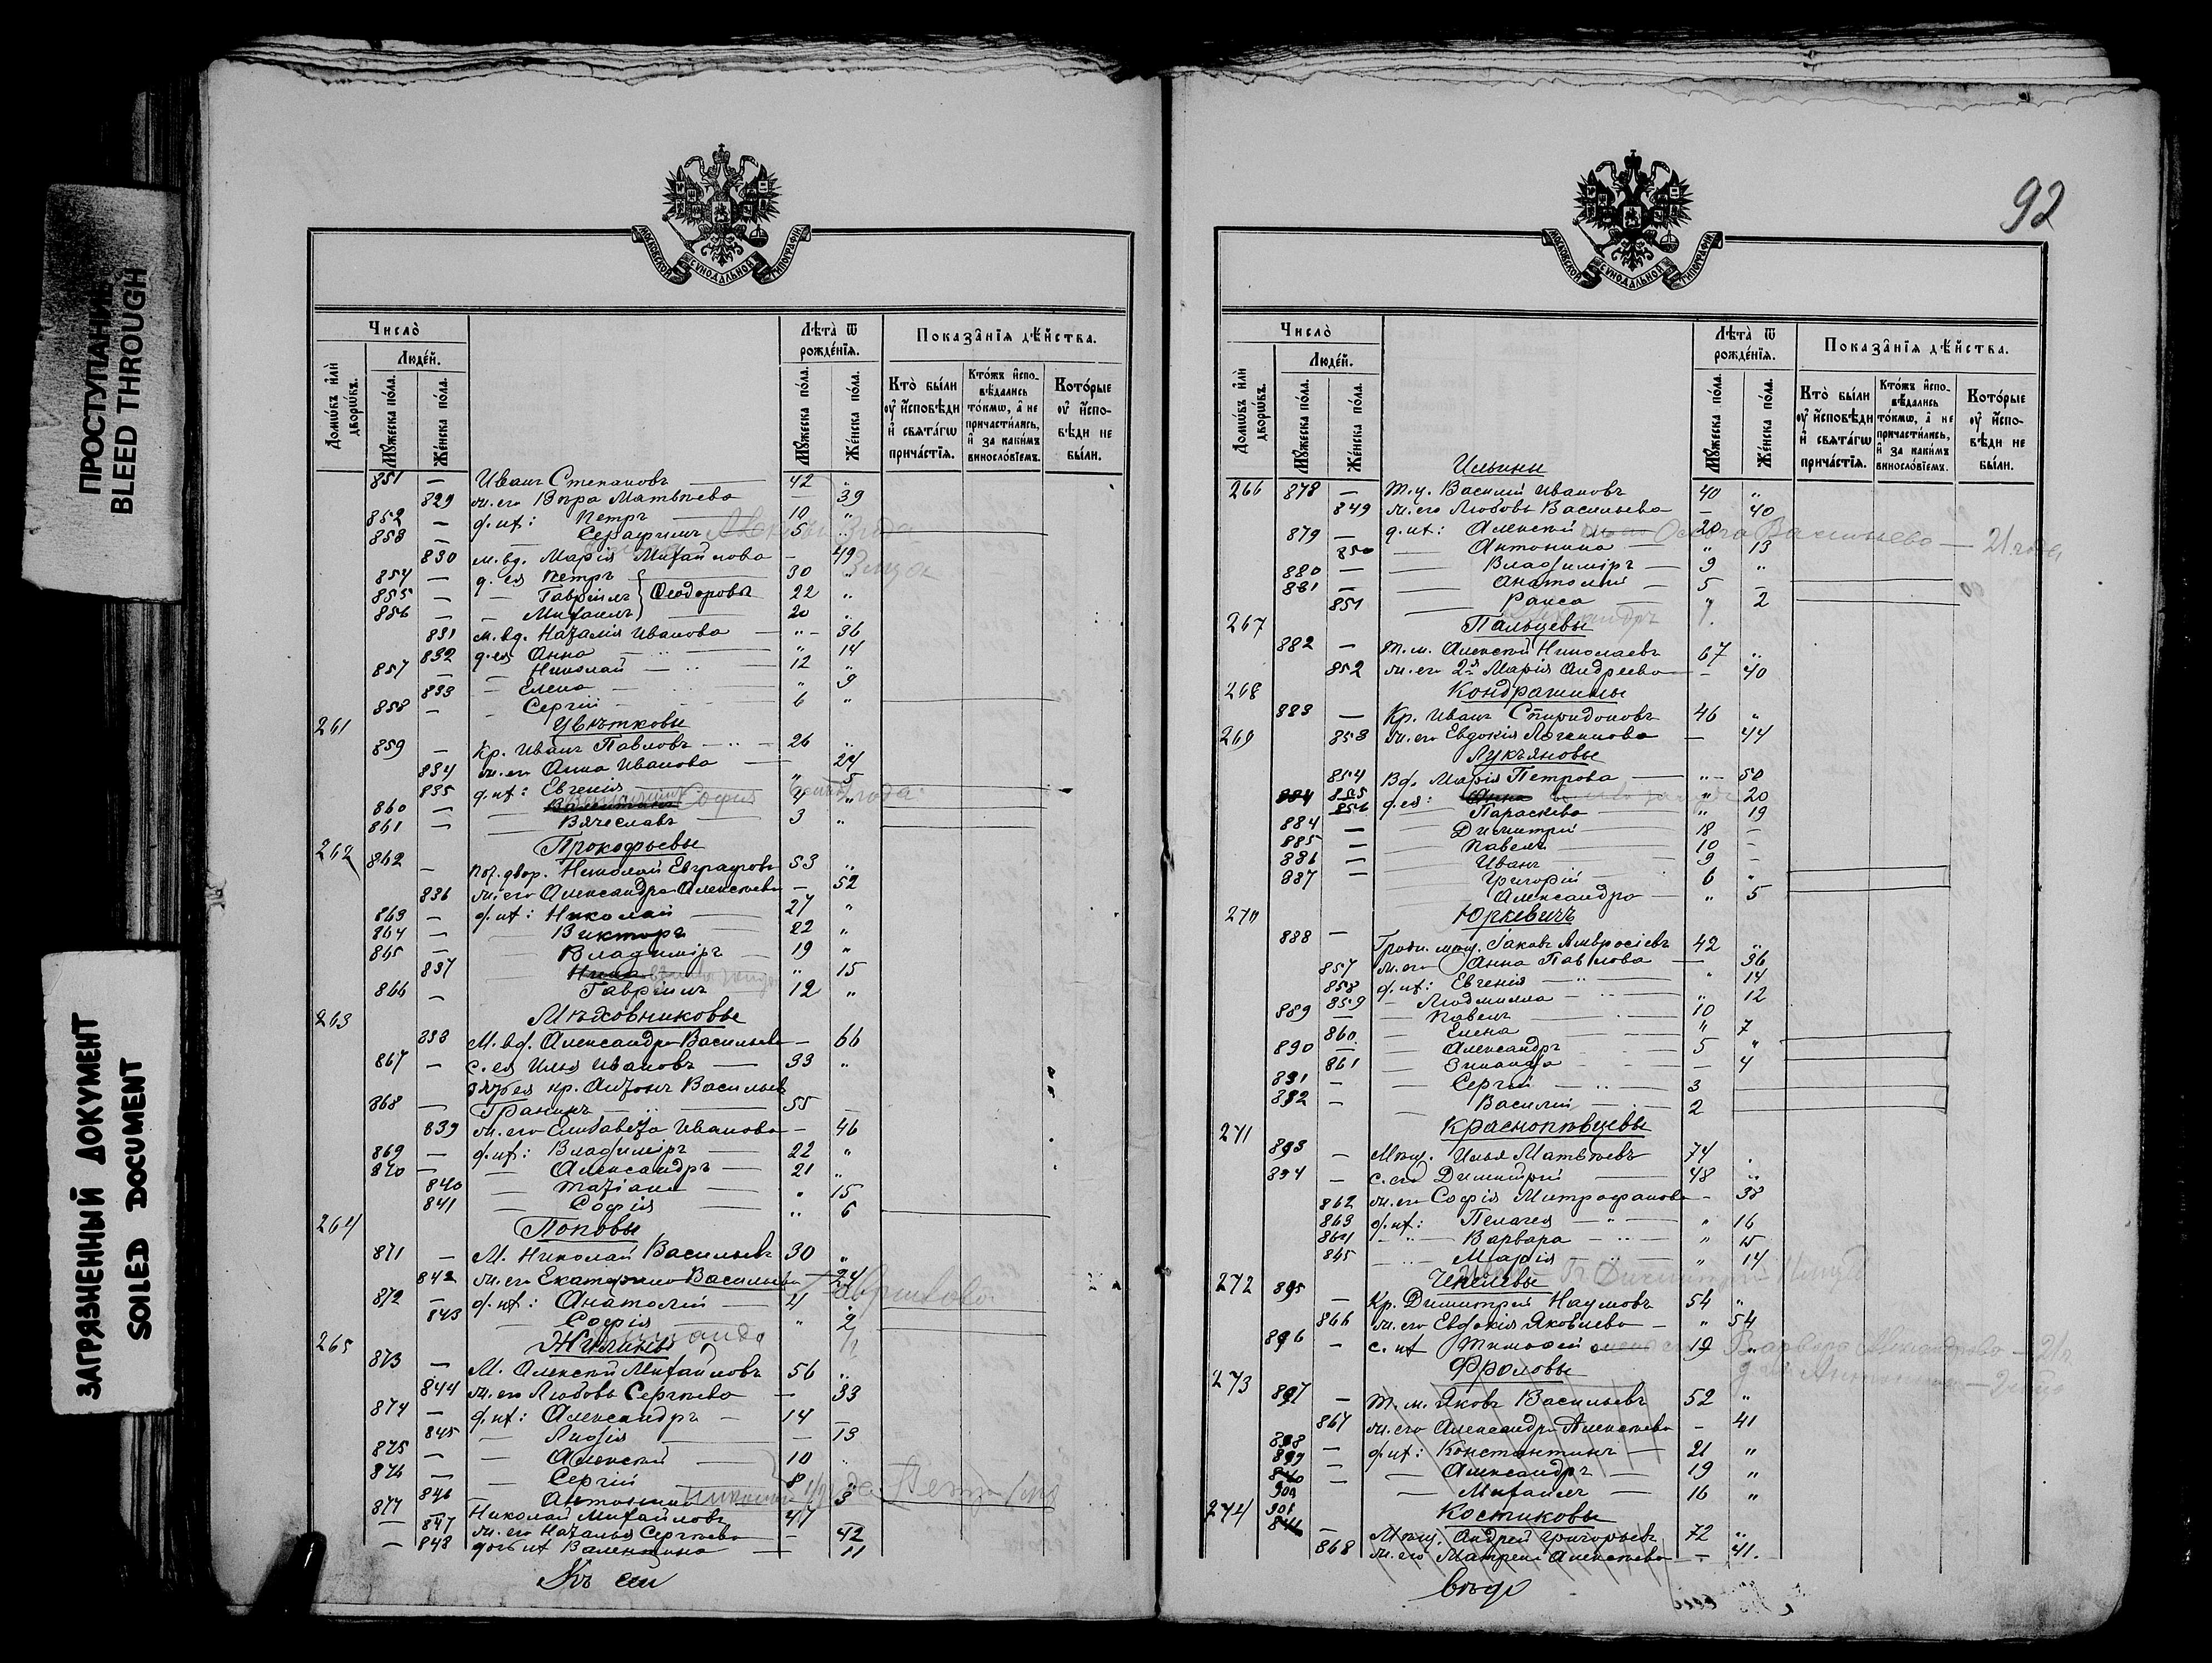 ПРОСТУПАНИЕ
BLEED THROUGH
ЗАГРЯЗНЕННЫЙ ДОКУМЕНТ
SOILED DOCUMENT
МОСКОВСКОЙ СУНОДАЛЬНОЙ ТИПОГРАФІИ
Число̀
Людéй.
Домѡ́въ и҆лѝ дворѡ́въ.
Мꙋ́жеска пóла.
Жéнска пóла.
Лѣ́та ѿ рождéнїѧ.
Мꙋ́жеска пóла.
Жéнска пóла.
Показа̂нїѧ дѣ́йства.
Кто̀ бы́ли ᲂу҆ и҆сповѣ́ди и҆ свѧта́гѡ прича́стїѧ.
Кто́жъ и҆сповѣ́дались то́кмѡ, а҆ не причасти́лись, и҆ за каки́мъ винослóвїемъ.
Кото́рые ᲂу҆ и҆сповѣ́ди не бы́ли.
851 — Иванъ Степановъ 42 „
829 ж. его Вѣра Матвѣева — 39
852 — д. их: Петръ 10 „
853 — Серафимъ 5 „
830 м. вд. Марія Михайлова — 49
854 — д. ея Петръ 30 „
855 — Гавріилъ } Ѳеодоровы 22 „
856 — Михаилъ 20 „
831 м. вд. Наталія Иванова „ 36
832 д. ея Анна „ 14
857 — Николай 12 „
833 Елена „ 9
858 — Сергій 6 „
261 Цвѣтковы
859 — Кр. Иванъ Павловъ 26 „
834 ж. его Анна Иванова — 24
835 д. их: Евгенія „ 5
860 — София 4 „
861 — Вячеславъ 3 „
262 Прокофьевы
862 — Пот. двор. Николай Евграфовъ 53 „
836 ж. его Александра Алексѣева — 52
863 — д. их: Николай 27 „
864 — Викторъ 22 „
865 — Владиміръ 19 „
837 Нина „ 15
866 — Гавріилъ 12 „
263 Мѣховниковы
838 М. вд. Александра Васильева — 66
867 — с. ея Илья Ивановъ 33 „
зять ея кр. Антонъ Васильевъ
868 — Гранинъ 55 —
839 ж. его Елисавета Иванова — 46
869 — д. их: Владиміръ 22 „
870 — Александръ 21 „
840 Татіана „ 15
841 Софія „ 6
264 Поповы
871 — М. Николай Васильевъ 30 „
842 ж. его Екатерина Васильева — 24
872 — д. их: Анатолій 4 „
843 Софія „ 2
265 Жилины
873 — М. Алексѣй Михайловъ 56 „
844 ж. его Любовь Сергѣева — 33
874 — д. их: Александръ 14 —
845 Лидія — 13
875 — Алексѣй 10 „
876 — Сергій 8
846 Антонина 3
877 Николай Михайловъ 47
847 ж. его Наталья Сергѣева — 42
848 дочь их Валентина — 11
92
МОСКОВСКОЙ СУНОДАЛЬНОЙ ТИПОГРАФІИ
Число̀
Людéй.
Домѡ́въ и҆лѝ дворѡ́въ.
Мꙋ́жеска пóла.
Жéнска пóла.
Лѣ́та ѿ рождéнїѧ.
Мꙋ́жеска пóла.
Жéнска пóла.
Показа̂нїѧ дѣ́йства.
Кто̀ бы́ли ᲂу҆ и҆сповѣ́ди и҆ свѧта́гѡ прича́стїѧ.
Кто́жъ и҆сповѣ́дались то́кмѡ, а҆ не причасти́лись, и҆ за каки́мъ винослóвїемъ.
Кото́рые ᲂу҆ и҆сповѣ́ди не бы́ли.
Ильины
266 878 — Т. ц. Василій Ивановъ 40 „
849 ж. его Любовь Васильева — 40
879 — д. их: Алексѣй 20 Васильева — 21 года
850 Антонина „ 13
880 — Владиміръ 9 „
881 — Анатолій 5 —
851 Раиса „ 2
267 Пальцевы
882 — Т. м. Алексѣй Николаевъ 67 „
852 ж. его 2я Марія Андреева — 40
268 Кондрашины
883 — Кр. Иванъ Спиридоновъ 46 „
269 853 ж. его Евдокія Логгинова — 44
Лукъяновы
854 Вд. Марія Петрова „ 50
884 855 д. ея: Анна „ 20
856 Параскева „ 19
884 — Димитрій 18 —
885 — Павелъ 10 —
886 — Иванъ 9 —
887 — Григорій 6 „
Александра „ 5
270 Юркевичъ
888 — Гродн. мѣщ. Іаковъ Амвросіевъ 42 „
857 ж. его Анна Павлова — 36
858 д. их: Евгенія „ 14
859 Людмилла „ 12
889 — Павелъ 10
860 Елена „ 7
890 — Александръ 5 „
861 Зинаида — 4
891 — Сергій 3
892 — Василій 2
271 Краснопѣвцевы
893 — Мѣщ. Илья Матвѣевъ 74 .
894 — с. его Димитрій 48 „
862 ж. его Софія Митрофанова — 38
863 д. их: Пелагея „ 16
864 Варвара „ 15
865 Марія „ 14
272 Чекалевы
895 — Кр. Димитрій Наумовъ 54 „
866 ж. его Евдокія Яковлева „ 54
896 — с. их Тимоѳей 19 Варвара Александрова — 21 г.
273 Фроловы
897 — Т. м. Яковъ Васильевъ 52 „
867 ж. его Александра Алексѣева — 41
898 — д. их: Константинъ 21 „
899 — Александръ 19 „
900 Михаилъ 16 „
274 Костиковы
901 — Мѣщ. Андрей Григорьевъ 72 „
868 ж. его Матрена Алексѣева — 41.